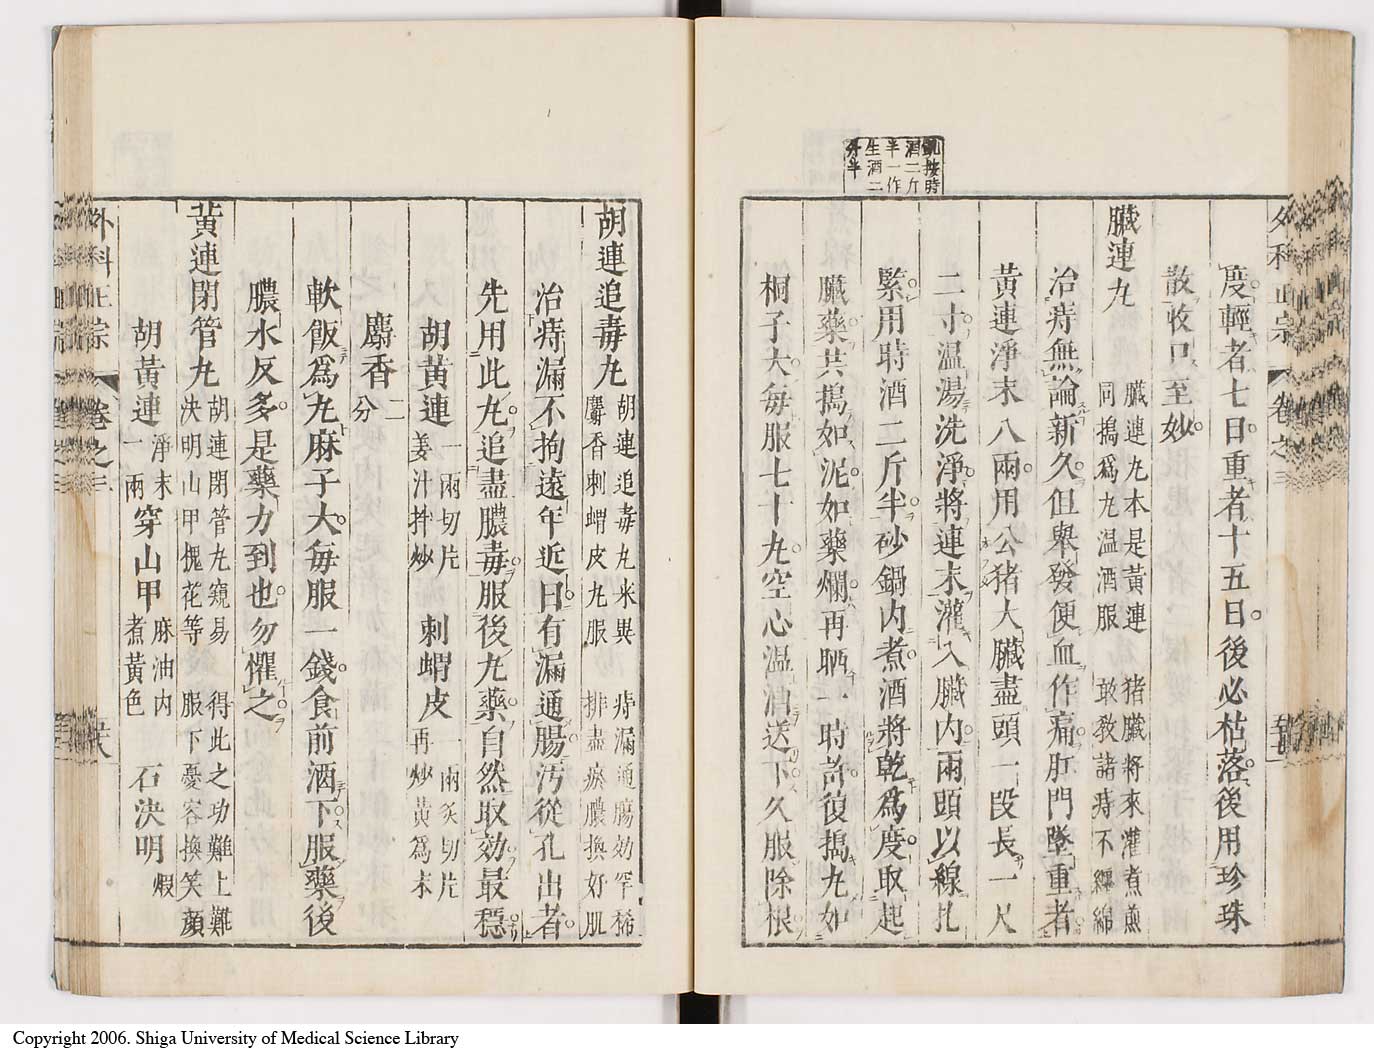 外科正宗 卷之三
度輕者七日重者十五日後必枯落後用珍珠
散收口至妙
臟連丸 臟連丸本是黃連 猪臟將來灌煮煎
同搗爲丸温酒服 敢教諸痔不纒綿
治痔無論新久但舉發便血作痛肛門墜重者
黃連淨末八兩用公猪大臟盡頭一段長一尺
二寸温湯洗淨將連末灌入臟内兩頭以線扎
緊用時酒二斤半砂鍋内煮酒將乾爲度取起
臟藥共搗如泥如藥爛再晒一時許復搗丸如
桐子大每服七十丸空心温酒送下久服除根
按時
酒二斤
半一作
生酒二
斤半
胡連追毒丸 胡連追毒丸米異 痔漏通腸効罕稀
麝香刺蝟皮丸服 排盡瘀膿換好肌
治痔漏不拘遠年近日有漏通腸汚從孔出者
先用此丸追盡膿毒服後丸藥自然取効最穩
胡黃連 一兩切片 刺蝟皮 一兩炙切片
姜汁拌炒 再炒黃爲末
麝香 二分
軟飯爲丸麻子大每服一錢食前酒下服藥後
膿水反多是藥力到也勿懼之
黃連閉管丸 胡連閉管丸窺易 得此之功難上難
決明山甲槐花等 服下憂容換笑顔
胡黃連 淨末 穿山甲 麻油内 石決明 煆
一兩 煮黃色
外科正宗 卷之三